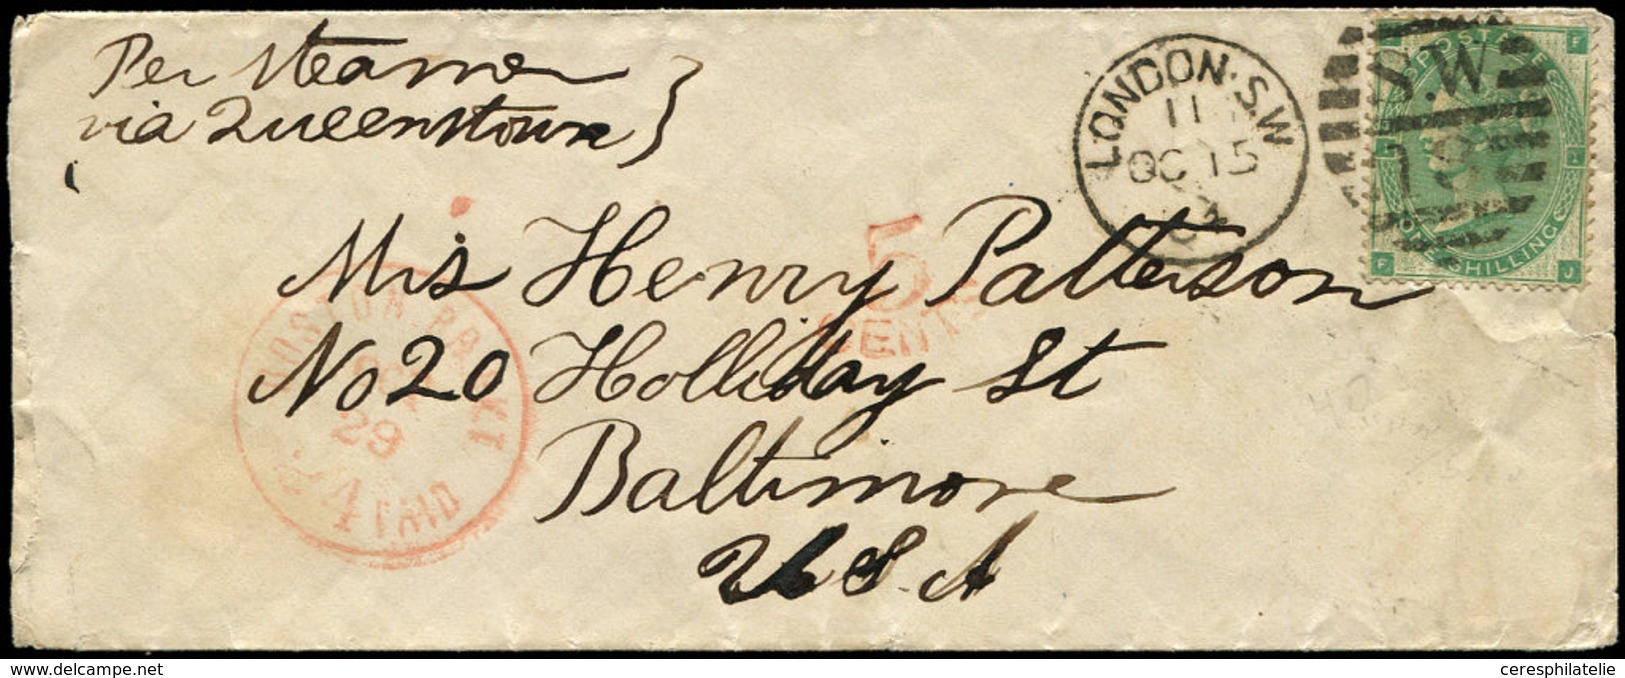 Per steamer
via Queenstown
LONDON·S.W
11
OC 15
S.W
18
POSTAGE
ONE SHILLING
F
F
J
5
CENTS
Mrs Henry Patterson
No 20 Holliday St
Baltimore
U.S.A
BOSTON BR. PKT
29
PAID
www.delcampe.net
ceresphilatelie